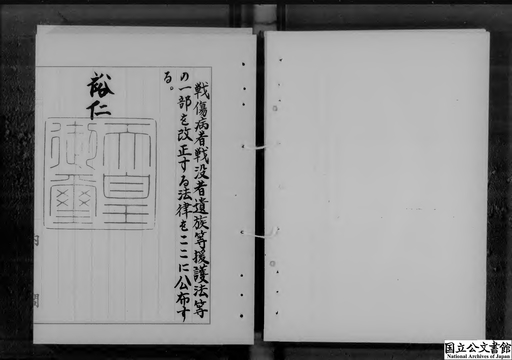 戦傷病者戦没者遺族等援護法等
の一部を改正する法律をここに公布す
る。
裕仁
天皇
御璽
国立公文書館
National Archives of Japan